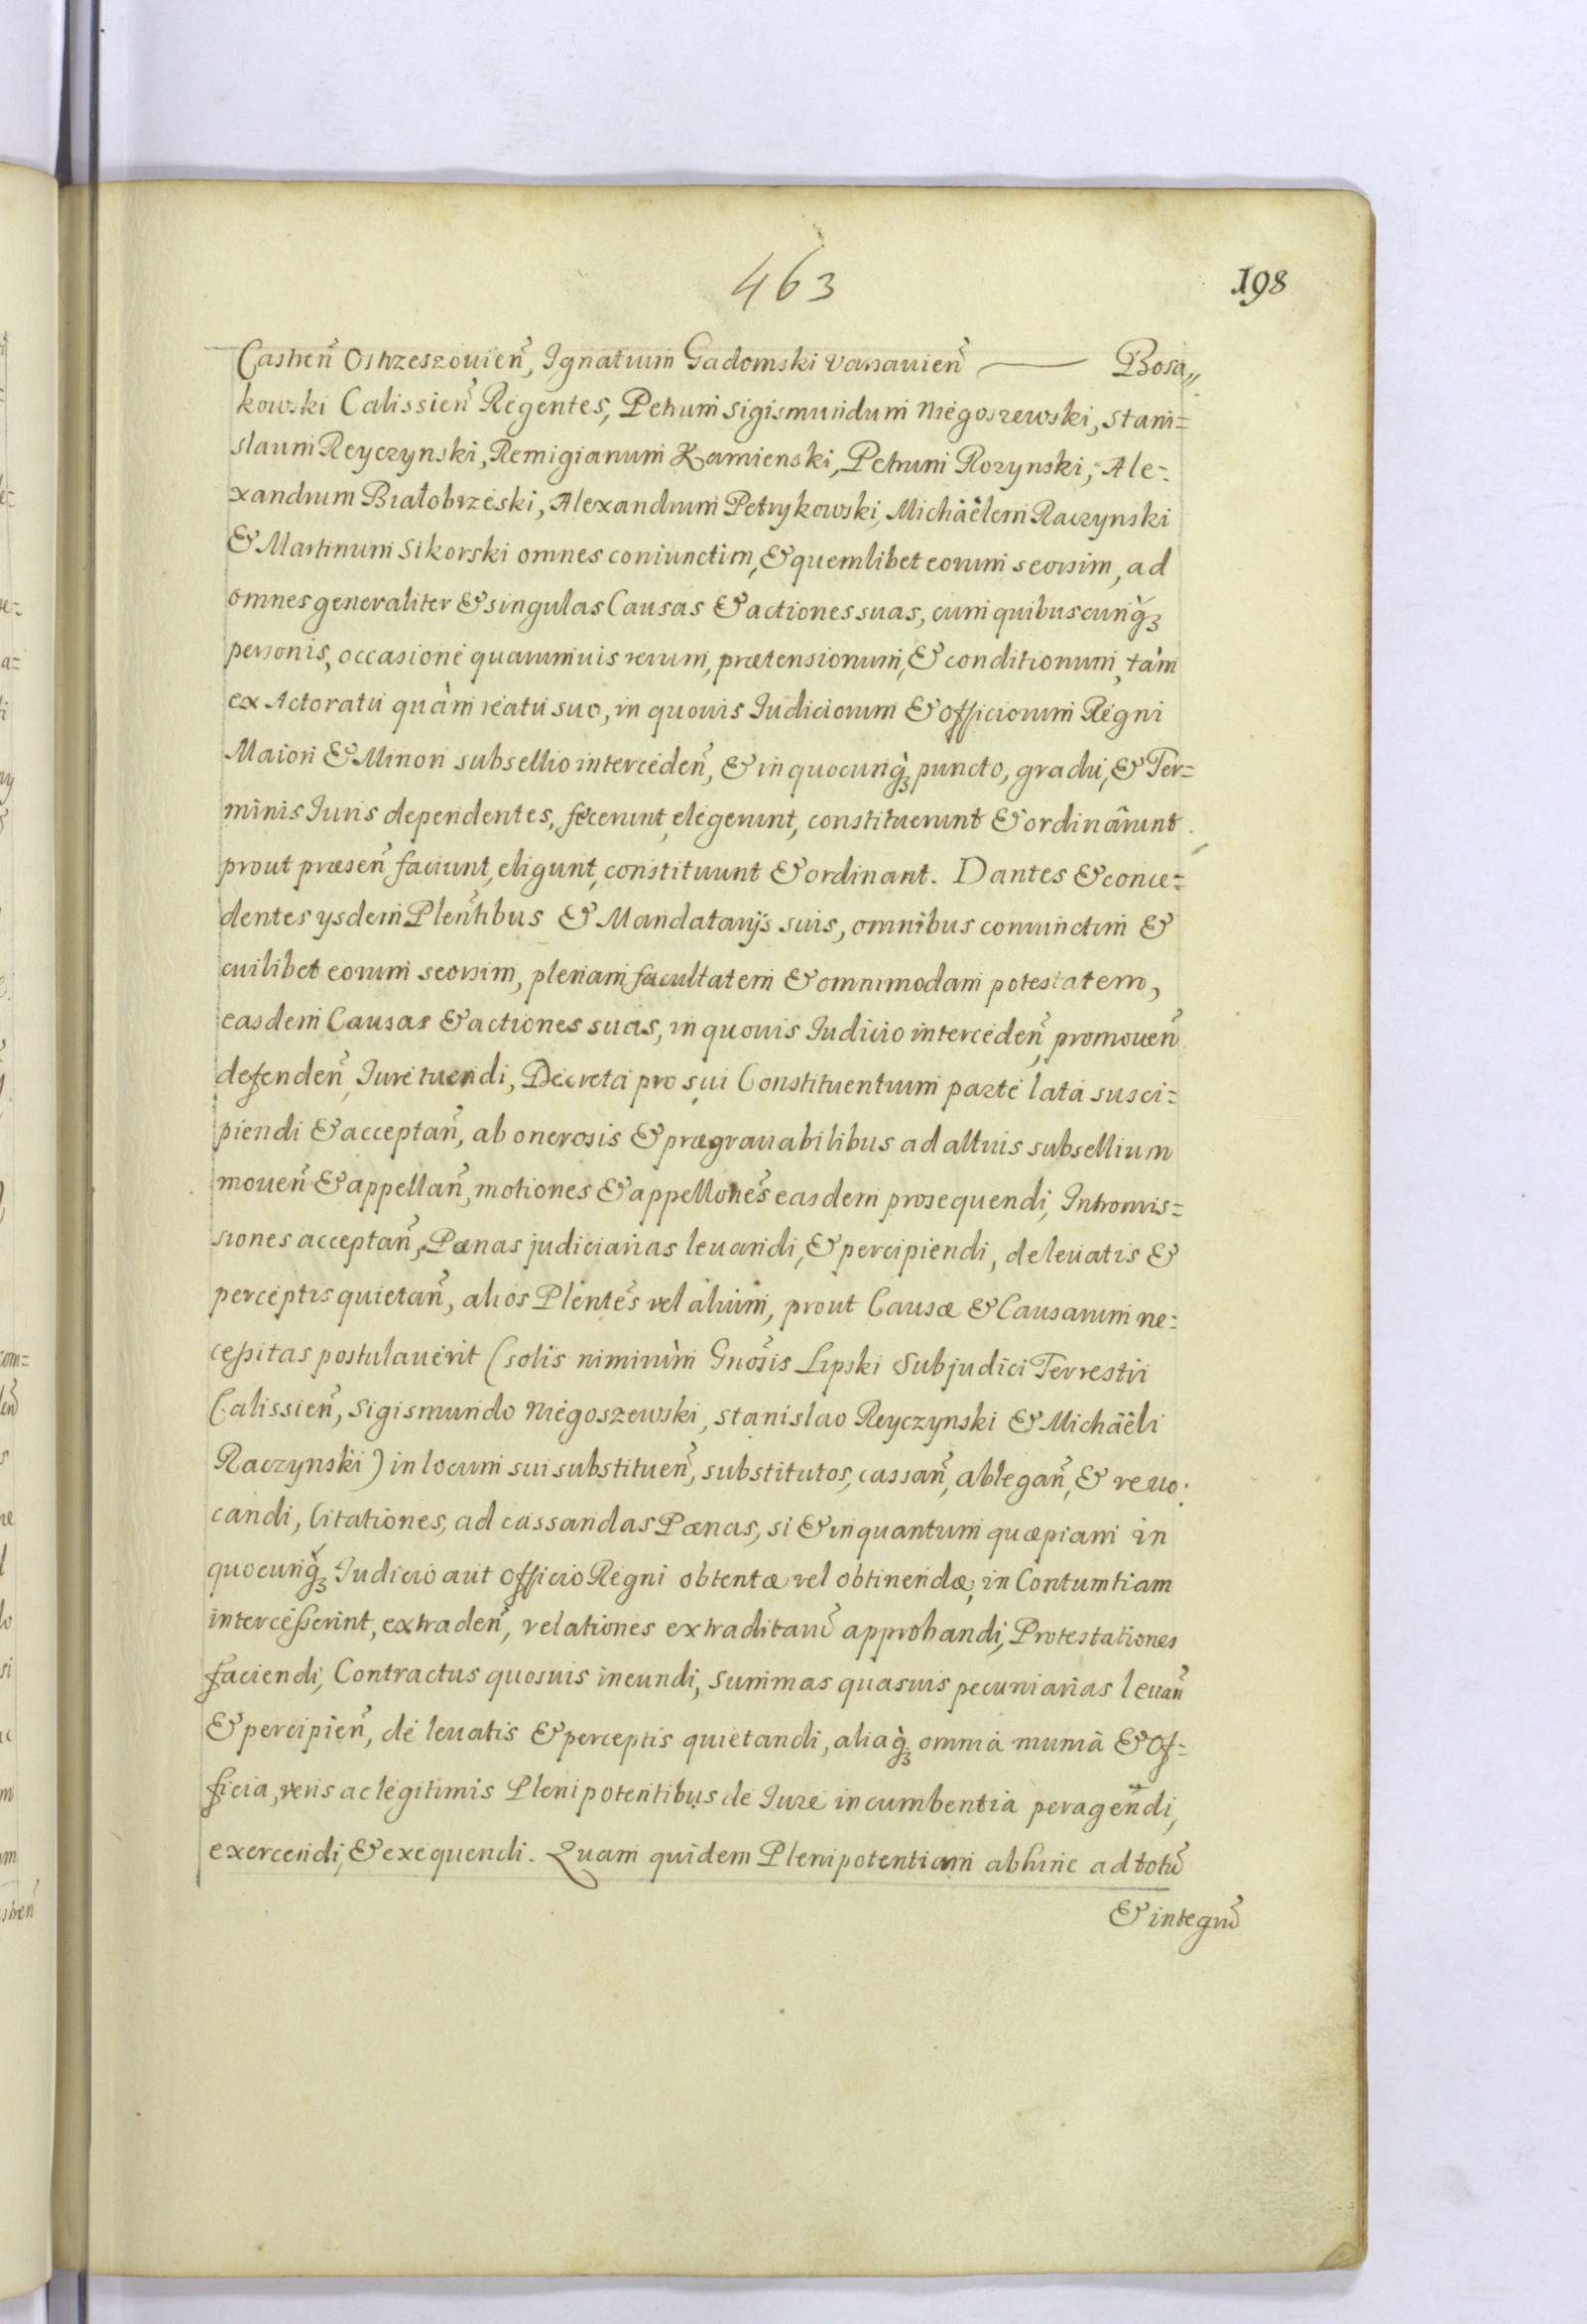 463
198
Castren̄ Ostrzeszouien̄, Ignatium Gadomski Varsauien̄ —— Bosa„
kowski Calissien̄ Regentes, Petrum Sigismundum Niegoszewski, Stani=
slaum Reyczynski, Remigianum Kamienski, Petrum Rozynski, Ale=
xandrum Białobrzeski, Alexandrum Petrykowski, Michäêlem Raczynski
& Martinum Sikorski omnes coniunctim, & quemlibet eorum seorsim, ad
omnes generaliter & singulas Causas & actiones suas, cum quibuscunqꝫ
personis, occasione quarumuis rerum, prætensionum, & conditionum, tàm
ex Actoratu quàm reatu suo, in quouis Iudiciorum & Officiorum Regni
Maiori & Minori subsellio interceden̄, & in quocunqꝫ puncto, gradu, & Ter=
minis Iuris dependentes, fecerunt, elegerunt, constituerunt & ordinârunt
prout præsen̄ faciunt, eligunt, constituunt & ordinant. Dantes & conce=
dentes ysdem Plen̄tibus & Mandatarijs suis, omnibus coniunctim &
cuilibet eorum seorsim, plenam facultatem & omnimodam potestatem,
easdem Causas & actiones suas, in quouis Iudicio interceden̄, promouen̄
defenden̄, Iure tuendi, Decreta pro sui Constituentium parte lata susci=
piendi & acceptan̄, ab onerosis & prægrauabilibus ad altius subsellium
mouen̄ & appellan̄, motiones & appellōnes easdem prosequendi, Intromis=
siones acceptan̄, Pænas judiciarias leuandi, & percipiendi, de leuatis &
perceptis quietan̄, alios Plēntes vel alium, prout Causæ & Causarum ne=
ceßitas postulauerit (solis nimirùm Gnōsis Lipski Subjudici Terrestri
Calissien̄, Sigismundo Niegoszewski, Stanislao Reyczynski & Michäêli
Raczynski) in locum sui substituen̄, substitutos, cassan̄, ablegan̄, & reuo=
candi, Citationes, ad cassandas Pænas, si & inquantum quæpiam in
quocunqꝫ Iudicio aut Officio Regni obtentæ vel obtinendæ, in Contumtiam
interceßerint, extraden̄, relationes extraditarū approbandi, Protestationes
faciendi, Contractus quosuis ineundi, Summas quasuis pecuniarias leuan̄
& percipien̄, de leuatis & perceptis quietandi, aliaqꝫ omnia munia & Of=
ficia, veris ac legitimis Plenipotentibus de Iure incumbentia peragendi,
exercendi, & exequendi. Quam quidem Plenipotentiam abhinc ad totū
& integrū